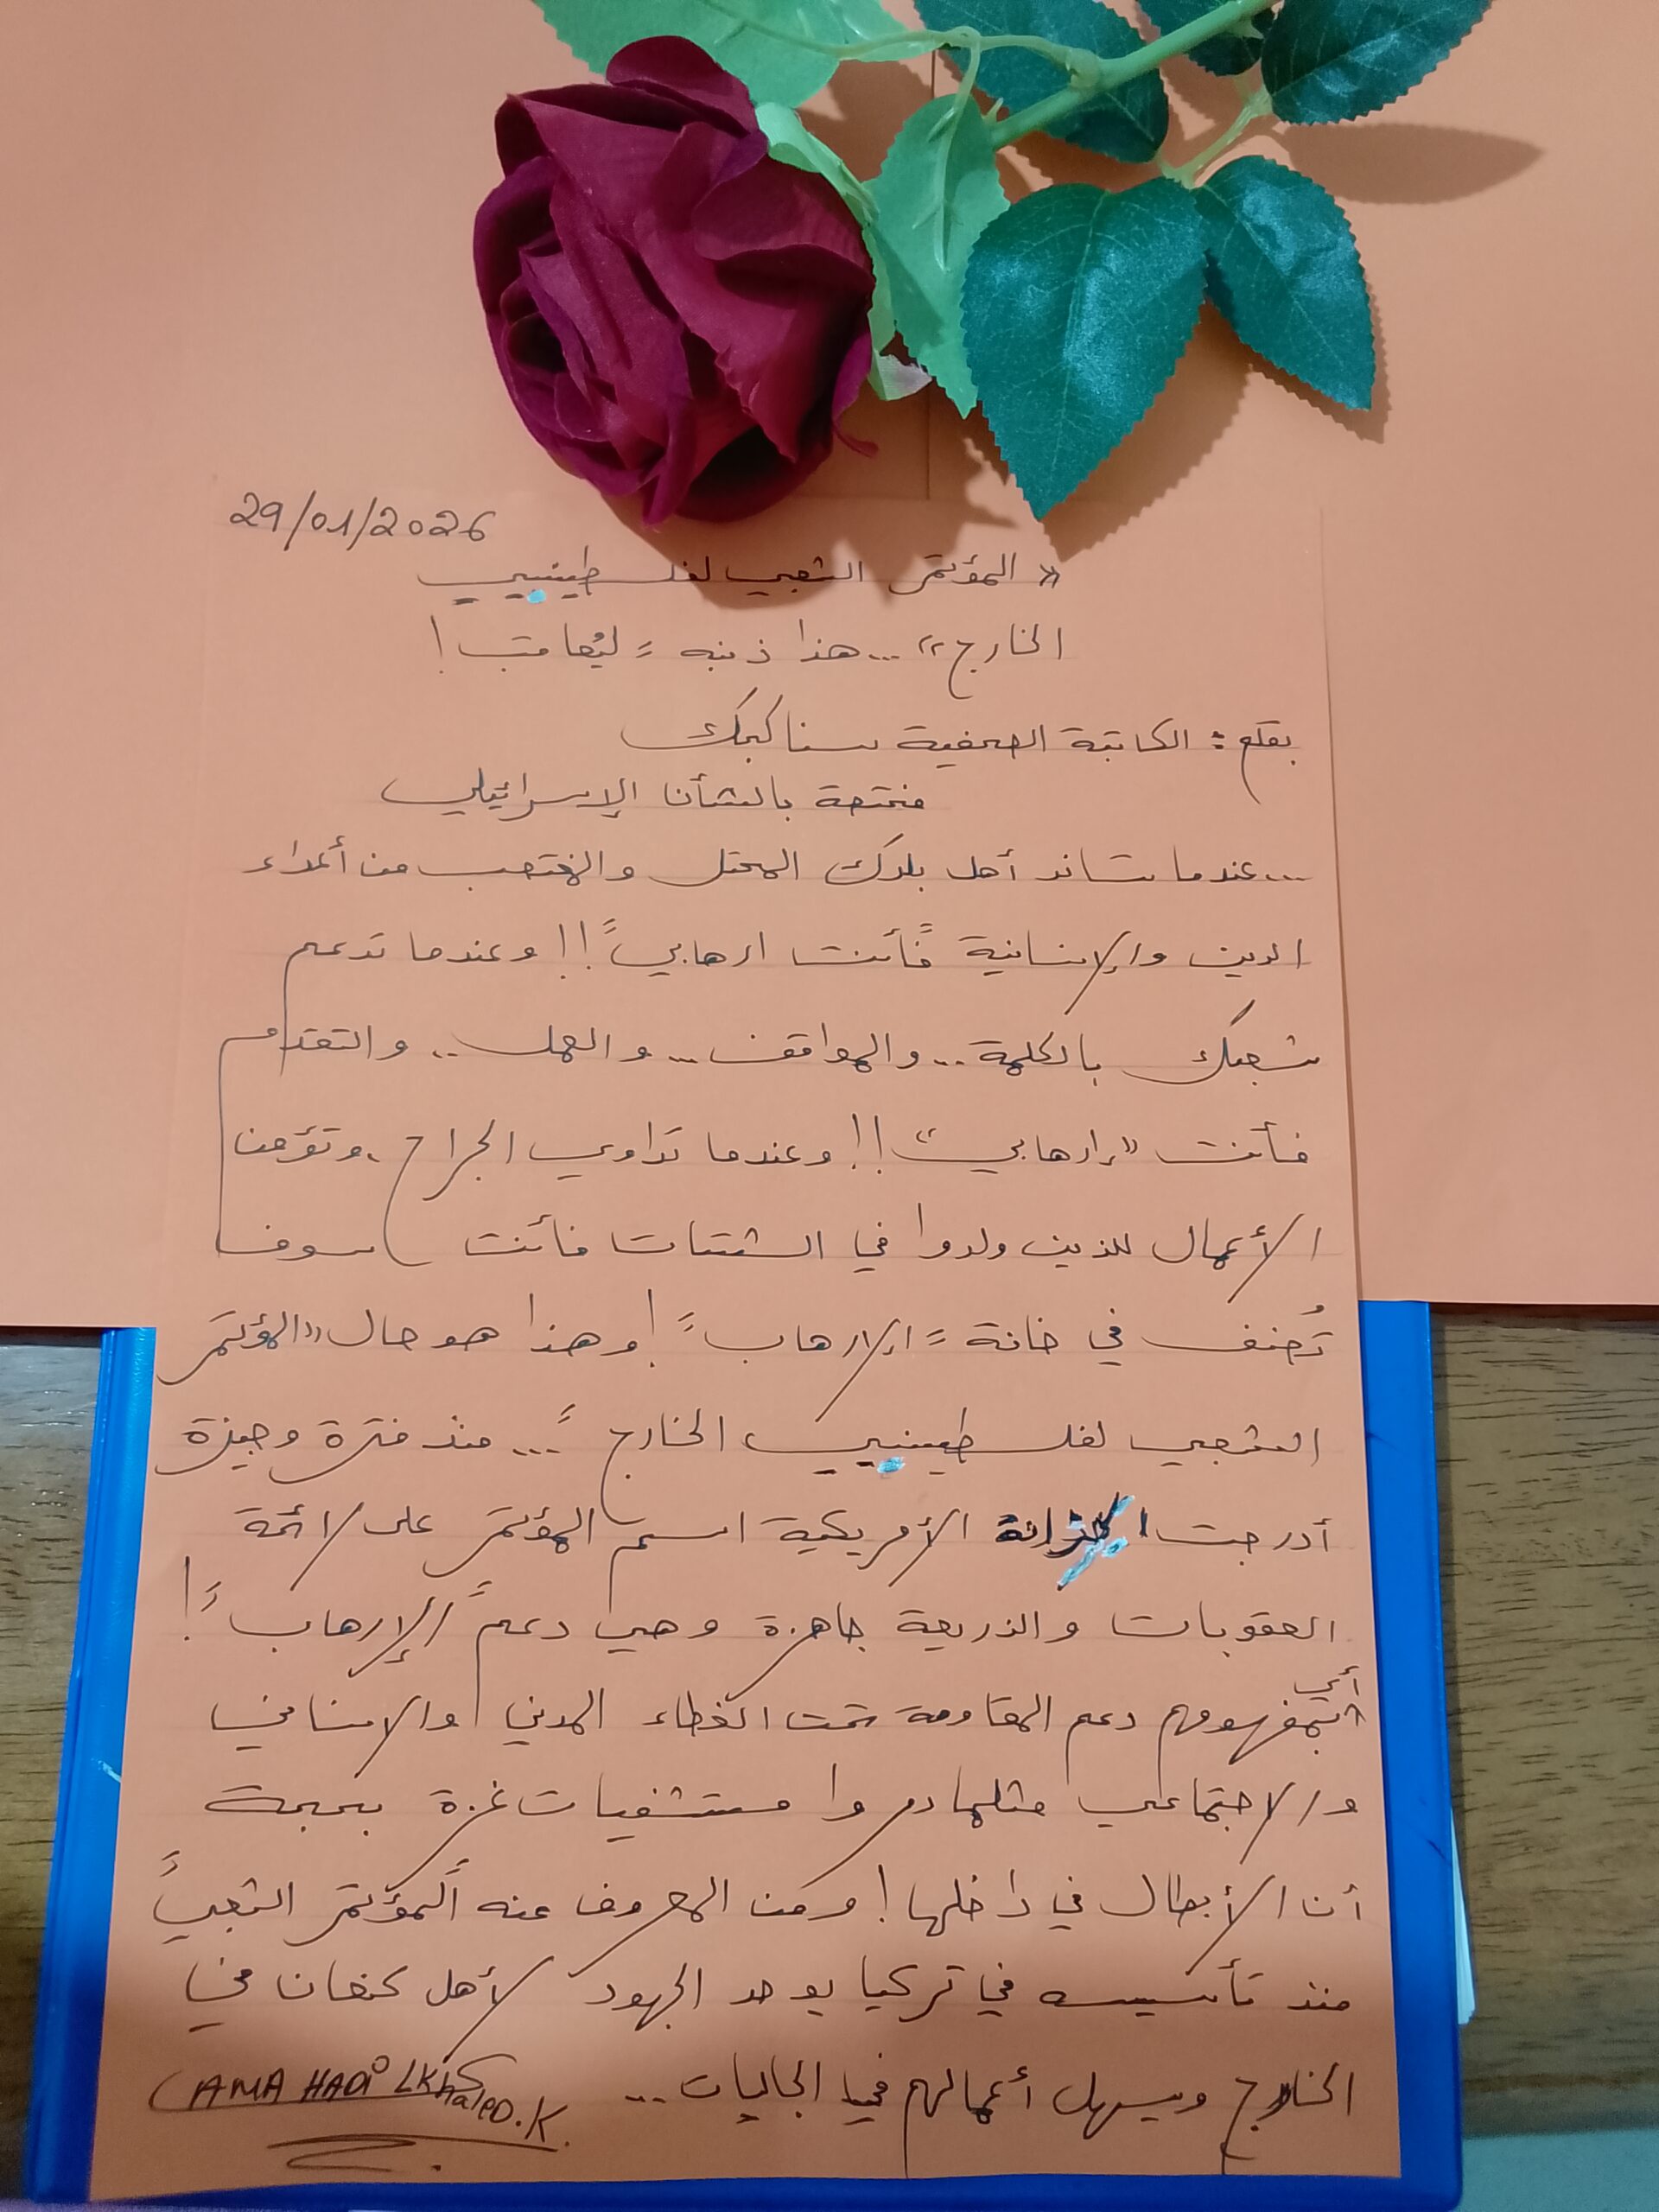 29/01/2026
« المؤتمر الشعبي لفلسطينيي
الخارج » ... هذا ذنبه " ليُعاقب !
بقلم : الكاتبة الصحفية سنا كجك
مختصة بالشأن الإسرائيلي
... عندما تساند أهل بلدك المحتل والمغتصب من أعداء
الدين والإنسانية فأنت "ارهابي" !! وعندما تدعم
شعبك بالكلمة .. والمواقف ... والعمل .. والتقدم
فأنت "إرهابي" !! وعندما تداوي الجراح ، وتؤمن
الأعمال للذين ولدوا في الشتات فأنت سوف
تُصنف في خانة " الإرهاب " ! وهذا هو حال « المؤتمر
الشعبي لفلسطينيي الخارج " ... منذ فترة وجيزة
أدرجت الخزانة الأمريكية اسم المؤتمر على لائحة
العقوبات والذريعة جاهزة وهي دعم " الإرهاب " !
أي بمفهومهم دعم المقاومة تحت الغطاء المدني والانساني
والاجتماعي مثلما دمروا مستشفيات غزة بحجة
أن الأبطال في داخلها ! ومن المعروف عنه "المؤتمر الشعبي"
منذ تأسيسه في تركيا يوحد الجهود لأهل كنعان في
الخارج ويسهل أعمالهم في الجاليات ...
AMA HADI LKhaled.K.